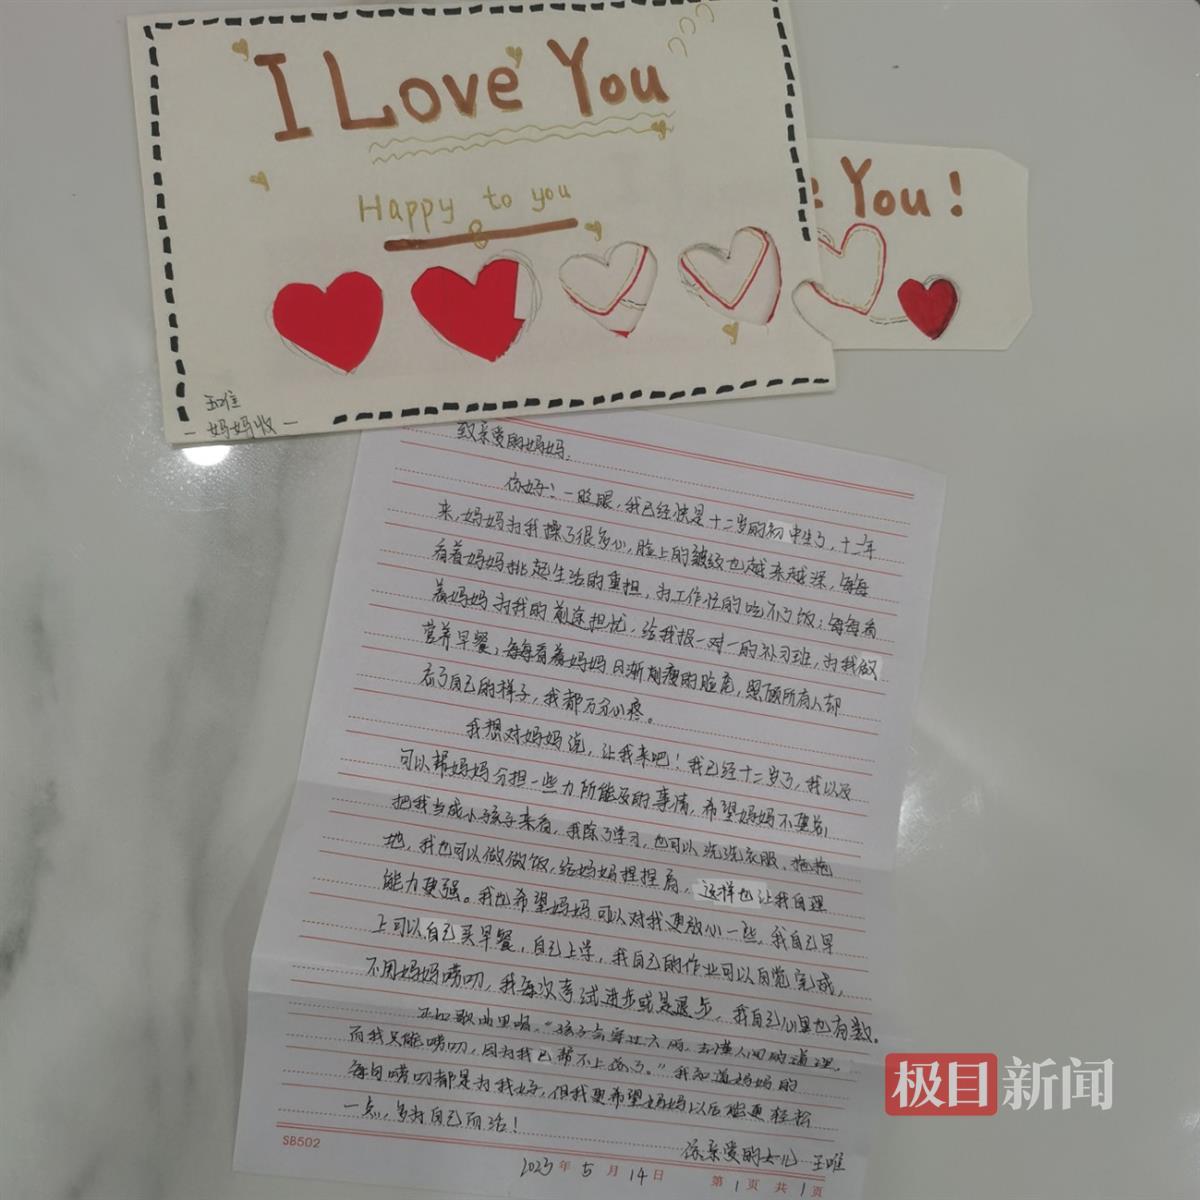 I Love You
Happy to you
You!
王唯
- 妈妈收 -
致亲爱的妈妈:
你好!一眨眼,我已经快是十二岁的初中生了,十二年
来,妈妈为我操了很多心,脸上的皱纹也越来越深,每每
看着妈妈挑起生活的重担,为工作忙的吃不了饭;每每看
着妈妈为我的前途担忧,给我报一对一的补习班,为我做
营养早餐;每每看着妈妈日渐削瘦的脸庞,照顾所有人却
忘了自己的样子,我都万分心疼。
我想对妈妈说,让我来吧!我已经十二岁了,我以及
可以帮妈妈分担一些力所能及的事情,希望妈妈不要总
把我当成小孩子来看,我除了学习,也可以洗洗衣服、拖拖
地,我也可以做做饭,给妈妈捏捏肩,这样也让我自理
能力更强。我也希望妈妈可以对我更放心一些,我自己早
上可以自己买早餐,自己上学,我自己的作业可以自觉完成,
不用妈妈唠叨,我每次考试进步或是退步,我自己心里也有数。
正如歌曲里唱,“孩子会穿过大雨,去懂人间的道理,
而我只能唠叨,因为我已帮不上你了。”我知道妈妈的
每句唠叨都是为我好,但我更希望妈妈以后能更轻松
一点,多为自己而活!
你亲爱的女儿 王唯
SB502
2023年5月14日
第1页 共1页
极目新闻